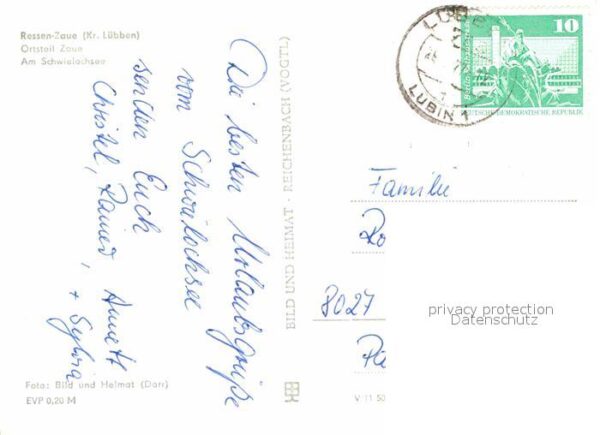 Ressen-Zaue (Kr. Lübben)
Ortsteil Zaue
Am Schwielochsee
Die besten Urlaubsgrüße
vom Schwielochsee
senden Euch
Christel, Rainer, Annett
+ Sylvia
Foto: Bild und Heimat (Darr)
EVP 0,20 M
BILD UND HEIMAT · REICHENBACH (VOGTL)
V 11 50
LÜBBEN
LUBIN 1
10
DEUTSCHE DEMOKRATISCHE REPUBLIK
Familie
Ro
8027
privacy protection
Datenschutz